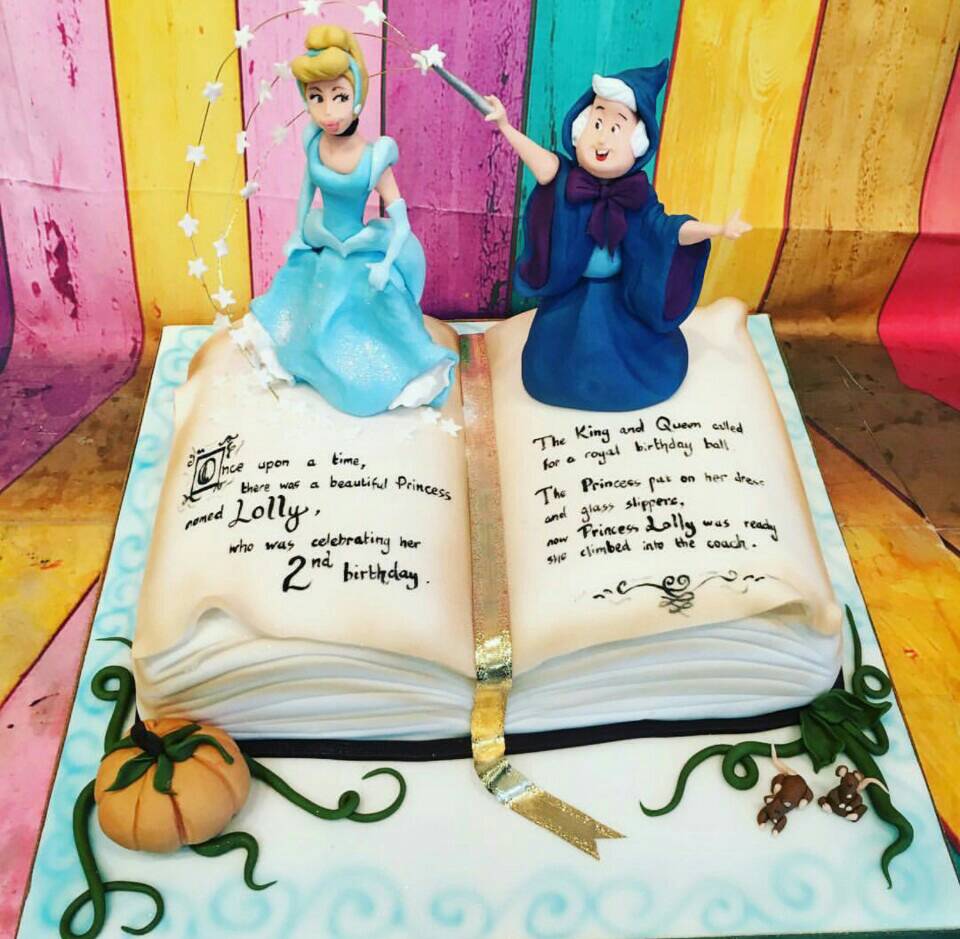 Once upon a time,
there was a beautiful Princess
named Lolly,
who was celebrating her
2nd birthday.
The King and Queen called
for a royal birthday ball
The Princess put on her dress
and glass slippers.
now Princess Lolly was ready
she climbed into the coach.